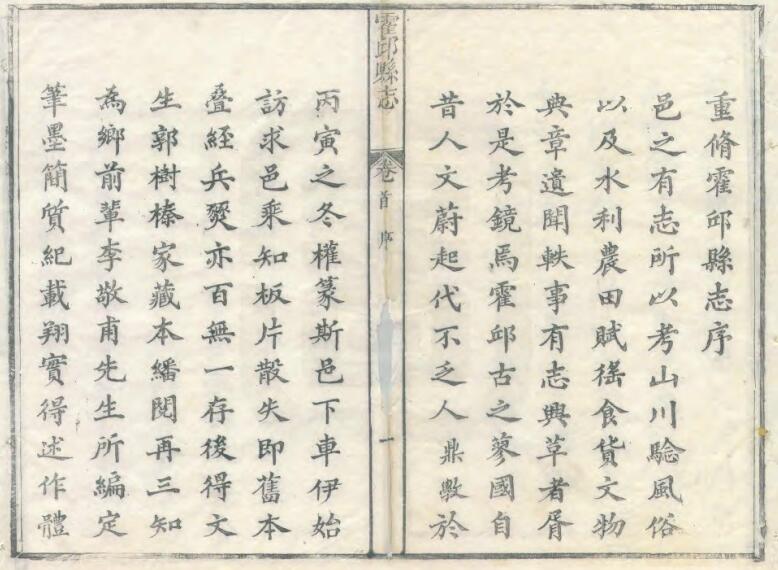 重脩霍邱縣志序
邑之有志所以考山川騐風俗
以及水利農田賦徭食貨文物
典章遺聞軼事有志興革者胥
於是考鏡焉霍邱古之蓼國自
昔人文蔚起代不乏人鼎斆於
霍邱縣志
卷首
序
一
丙寅之冬權篆斯邑下車伊始
訪求邑乘知板片散失即舊本
疊經兵燹亦百無一存後得文
生郭樹榛家藏本繙閱再三知
為鄉前輩李敬甫先生所編定
筆墨簡質紀載翔實得述作體